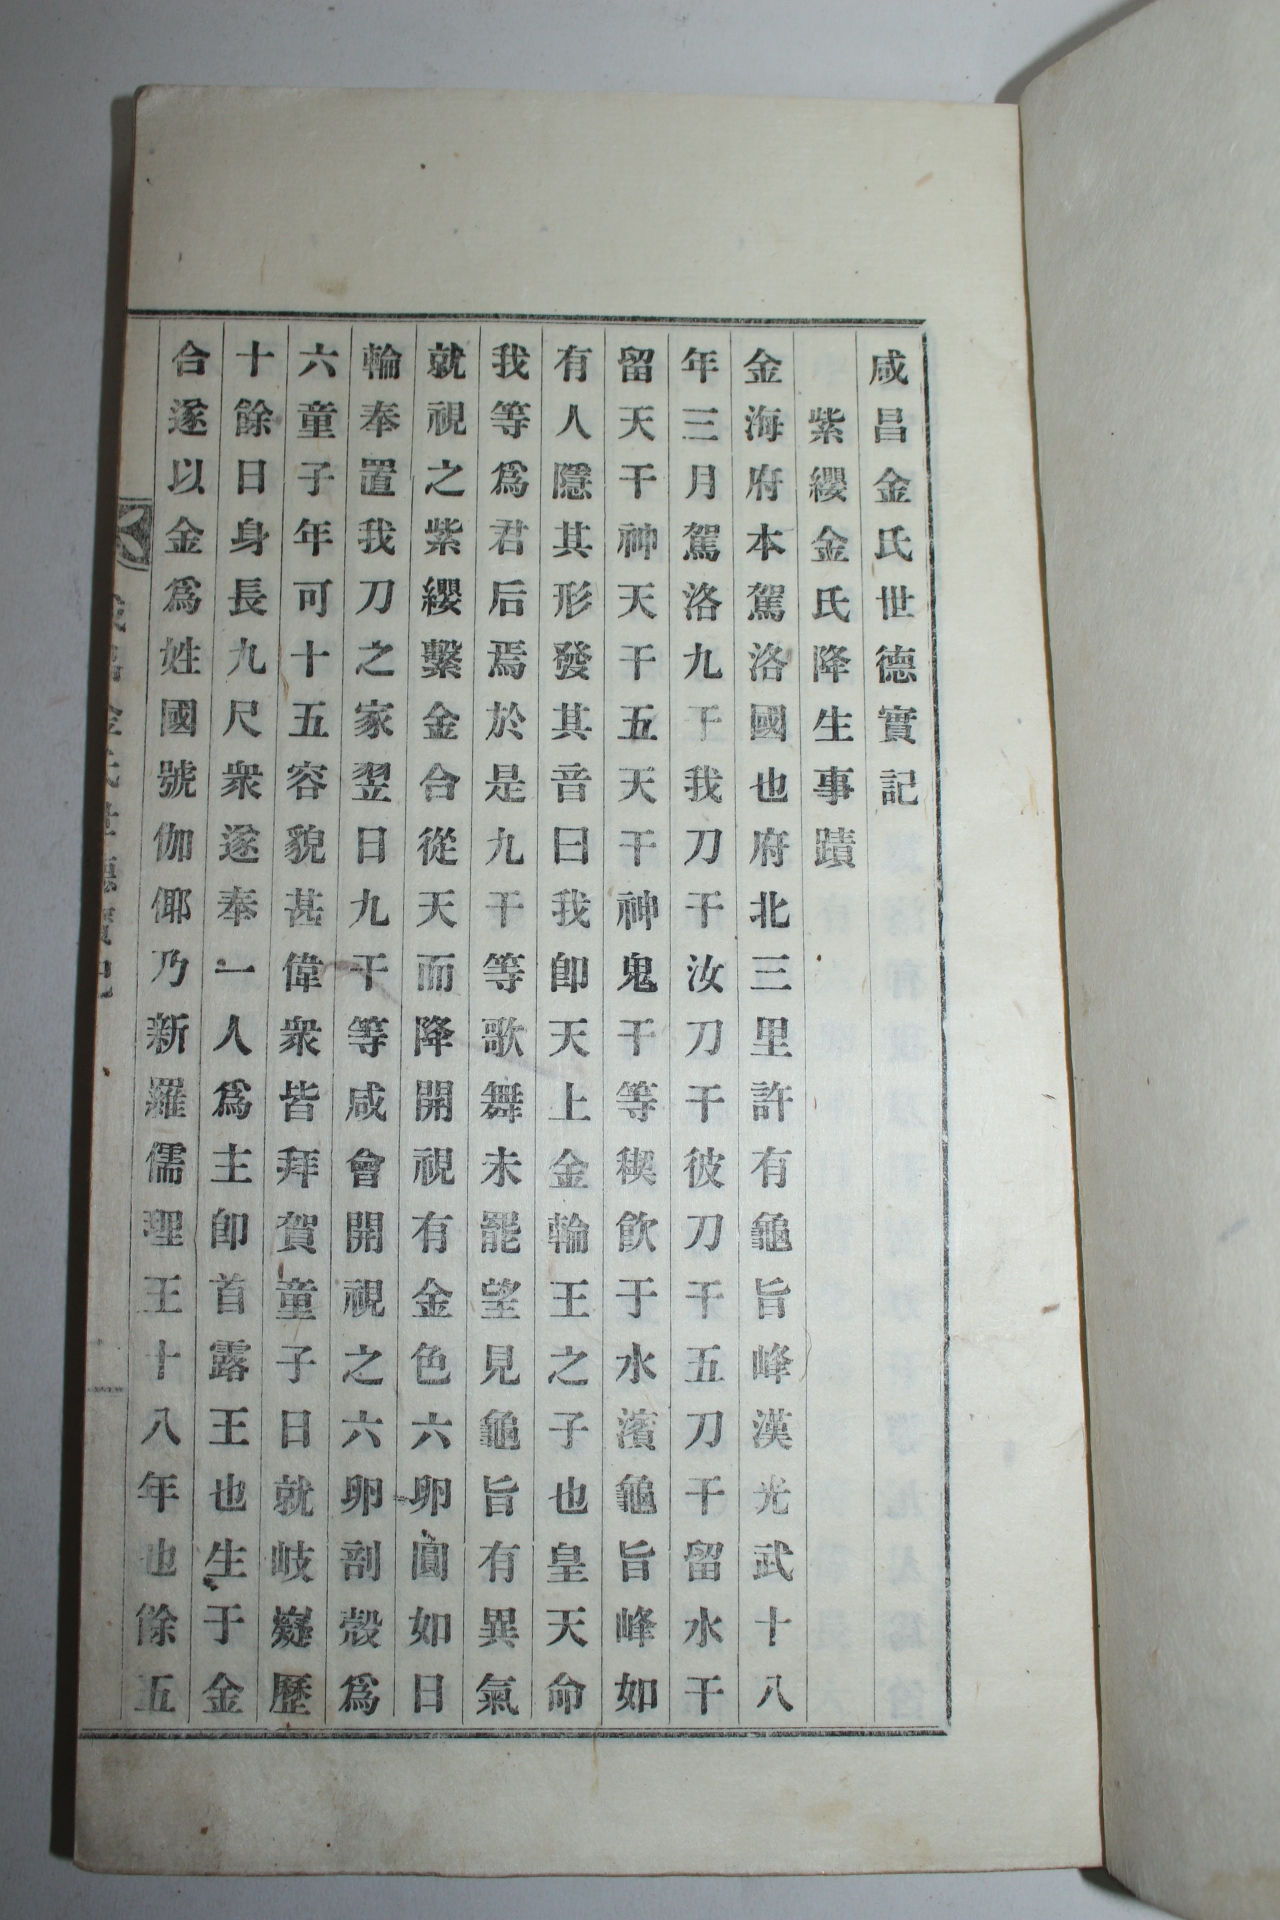 咸昌金氏世德實記
紫纓金氏降生事蹟
金海府本駕洛國也府北三里許有龜旨峰漢光武十八
年三月駕洛九干我刀干汝刀干彼刀干五刀干留水干
留天干神天干五天干神鬼干等禊飮于水濱龜旨峰如
有人隱其形發其音曰我卽天上金輪王之子也皇天命
我等爲君后焉於是九干等歌舞未罷望見龜旨有異氣
就視之紫纓繫金合從天而降開視有金色六卵圓如日
輪奉置我刀之家翌日九干等咸會開視之六卵剖殼爲
六童子年可十五容貌甚偉衆皆拜賀童子日就岐嶷歷
十餘日身長九尺衆遂奉一人爲主卽首露王也生于金
合遂以金爲姓國號伽倻乃新羅儒理王十八年也餘五
金氏世德實記